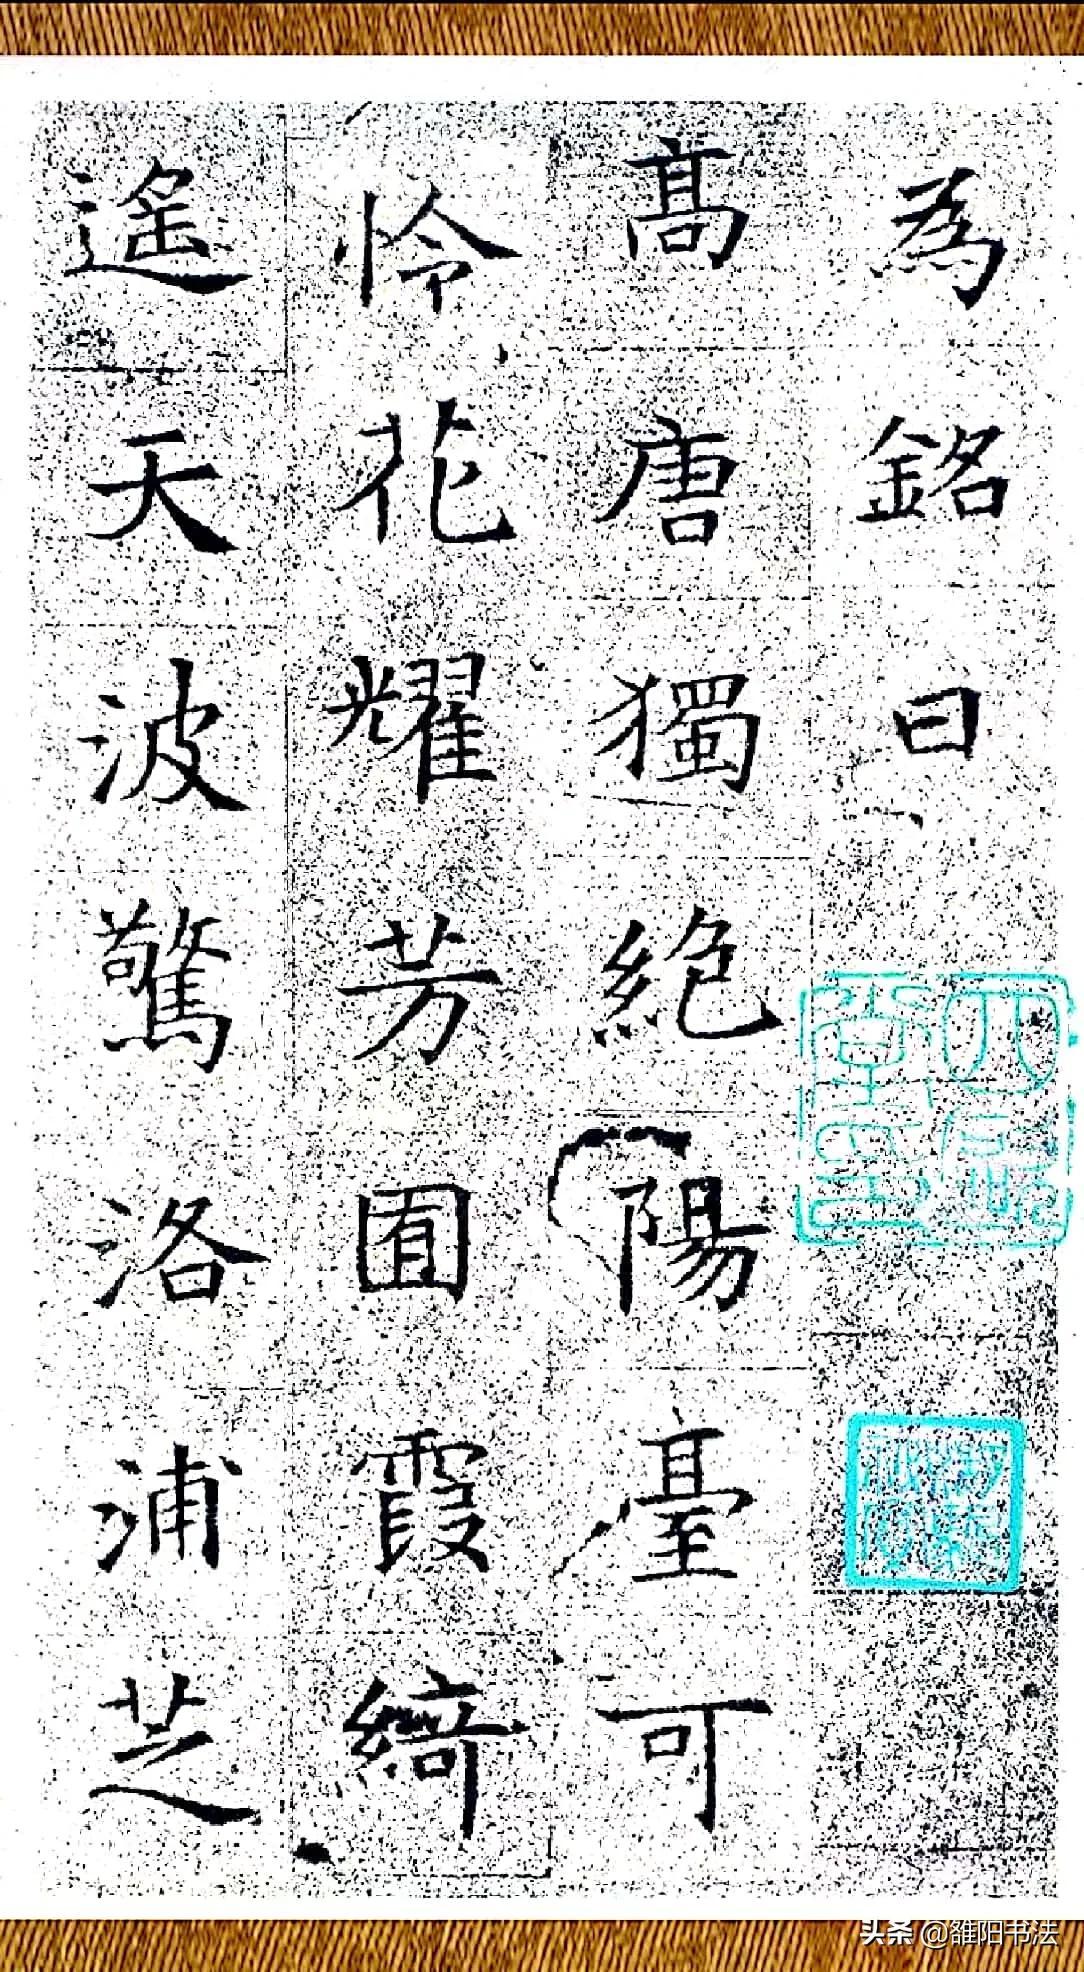 為銘曰
高唐獨絕陽臺可
怜花耀芳囿霞綺
遙天波驚洛浦芝
头条 @雒阳书法